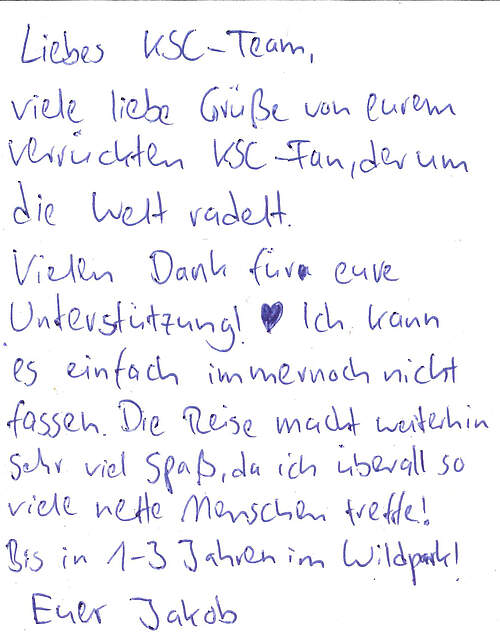 Liebes KSC-Team,
viele liebe Grüße von eurem
verrückten KSC-Fan, der um
die Welt radelt.
Vielen Dank für eure
Unterstützung! ♥ Ich kann
es einfach immernoch nicht
fassen. Die Reise macht weiterhin
sehr viel Spaß, da ich überall so
viele nette Menschen treffe!
Bis in 1-3 Jahren im Wildpark!
Euer Jakob